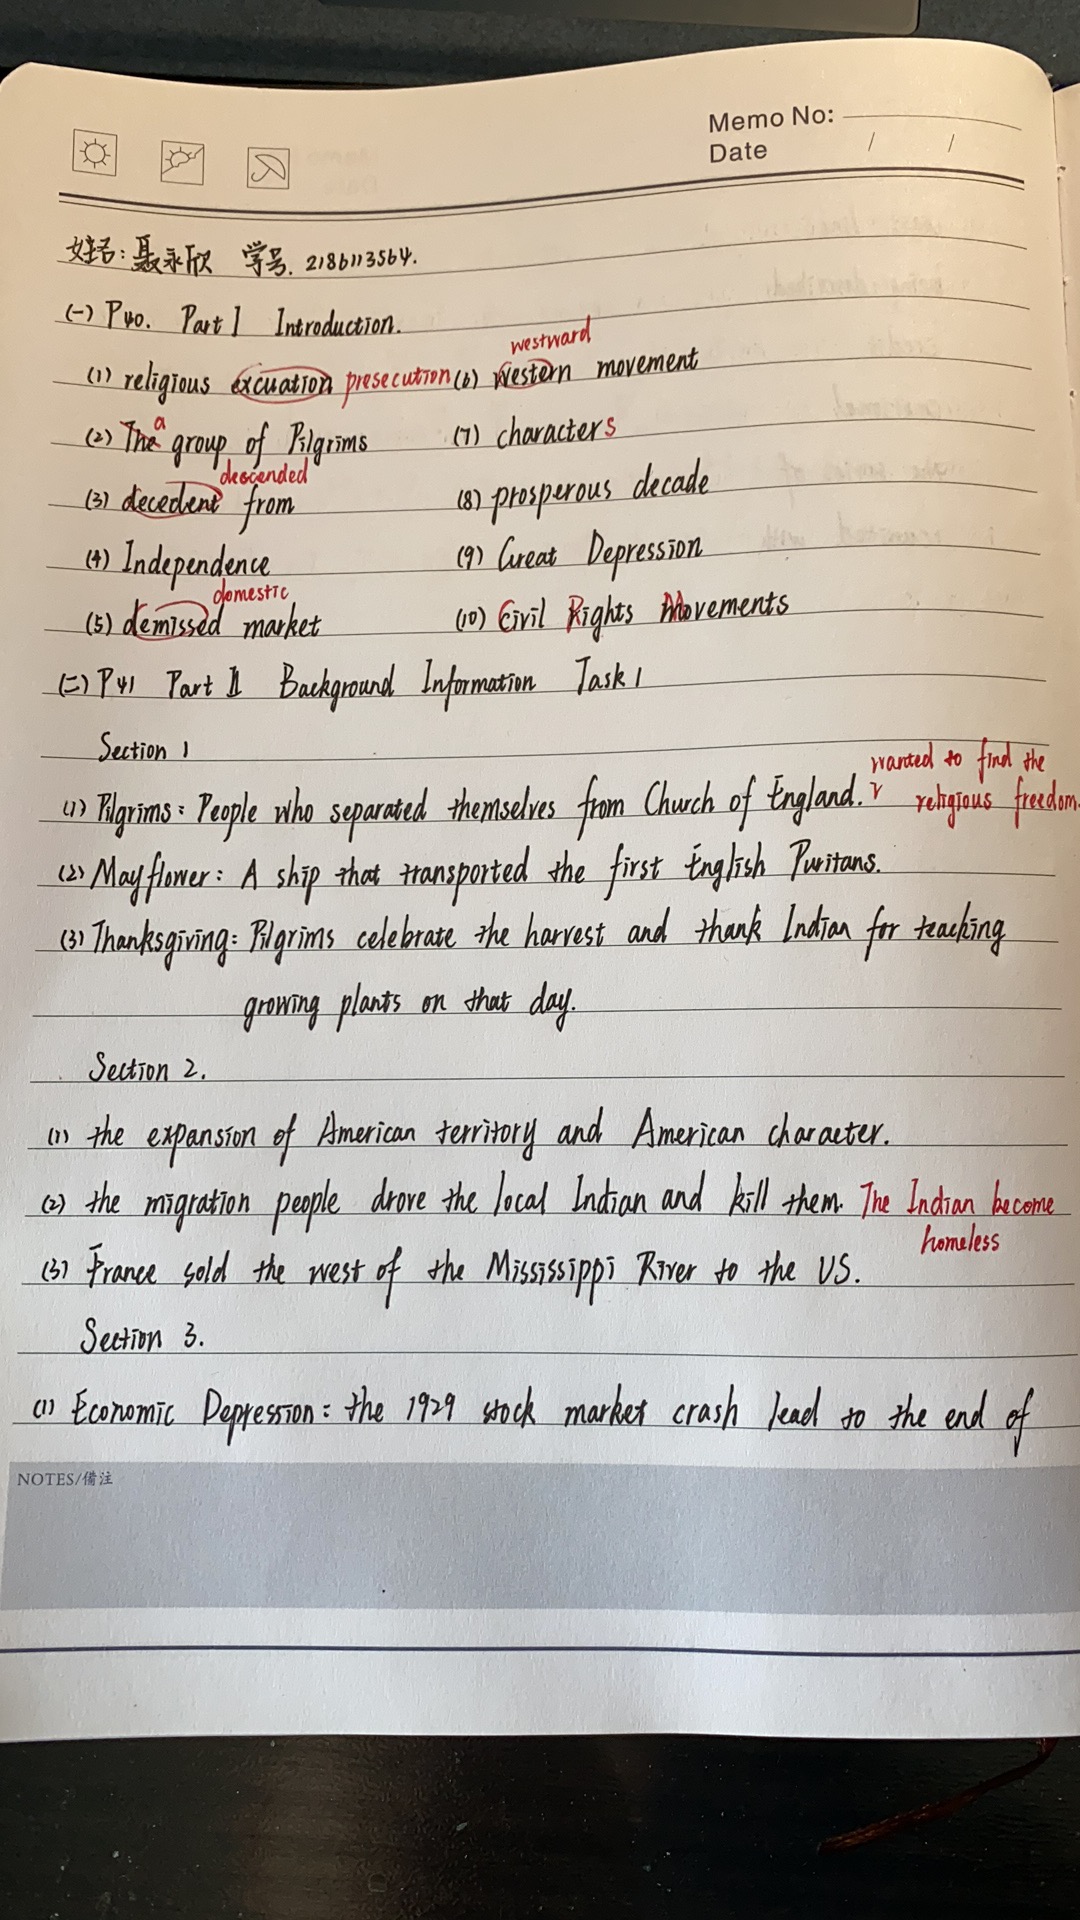 Memo No:
Date / /
姓名:聂永欣 学号. 2186113564.
(一) P40. Part I Introduction.
westward
(1) religious excuation presecution (6) Western movement
a
(2) The group of Pilgrims (7) characters
descended
(3) decedent from (8) prosperous decade
(4) Independence (9) Great Depression
domestic
(5) demissed market (10) Civil Rights Movements
(二) P41 Part II Background Information Task 1
Section 1
wanted to find the
(1) Pilgrims: People who separated themselves from Church of England. religious freedom.
(2) Mayflower: A ship that transported the first English Puritans.
(3) Thanksgiving: Pilgrims celebrate the harvest and thank Indian for teaching
growing plants on that day.
Section 2.
(1) the expansion of American territory and American character.
(2) the migration people drove the local Indian and kill them. The Indian become
homeless
(3) France sold the west of the Mississippi River to the US.
Section 3.
(1) Economic Depression: the 1929 stock market crash lead to the end of
NOTES/備注